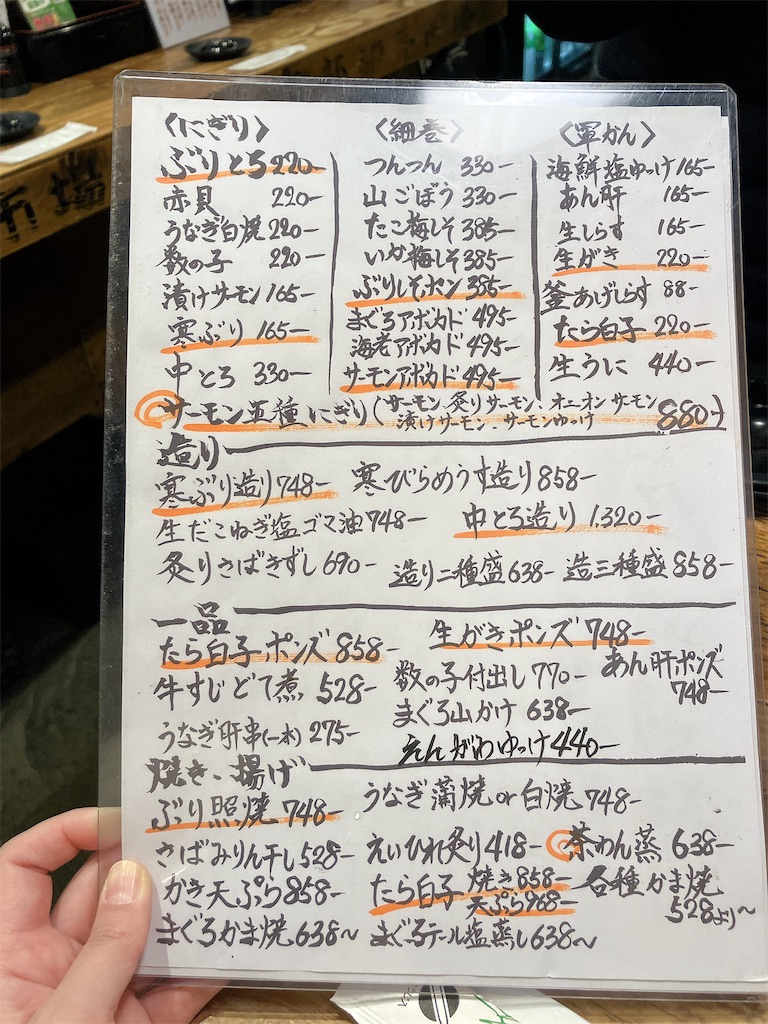 〈にぎり〉
ぶりとろ 220-
赤貝 220-
うなぎ白焼 220-
数の子 220-
漬けサーモン 165-
寒ぶり 165-
中とろ 330-
〈細巻〉
つんつん 330-
山ごぼう 330-
たこ梅しそ 385-
いか梅しそ 385-
ぶりしそポン 385-
まぐろアボカド 495-
海老アボカド 495-
サーモンアボカド 495-
〈軍かん〉
海鮮塩ゆっけ 165-
あん肝 165-
生しらす 165-
生がき 220-
釜あげしらす 88-
たら白子 220-
生うに 440-
サーモン五種にぎり(サーモン、炙りサーモン、オニオンサーモン
漬けサーモン、サーモンゆっけ 880-)
造り
寒ぶり造り 748- 寒びらめうす造り 858-
生だこねぎ塩ゴマ油 748- 中とろ造り 1,320-
炙りさばきずし 690- 造り二種盛 638- 造三種盛 858-
一品
たら白子ポンズ 858- 生がきポンズ 748-
牛すじどて煮 528- 数の子付出し 770- あん肝ポンズ
748-
まぐろ山かけ 638-
うなぎ肝串(一本) 275-
えんがわゆっけ 440-
焼き、揚げ
ぶり照焼 748- うなぎ蒲焼or白焼 748-
さばみりん干し 528- えいひれ炙り 418- 茶わん蒸 638-
かき天ぷら 858- たら白子 焼き 858-
天ぷら 968-
各種かま焼
528より〜
まぐろかま焼 638〜 まぐろテール塩蒸し 638〜